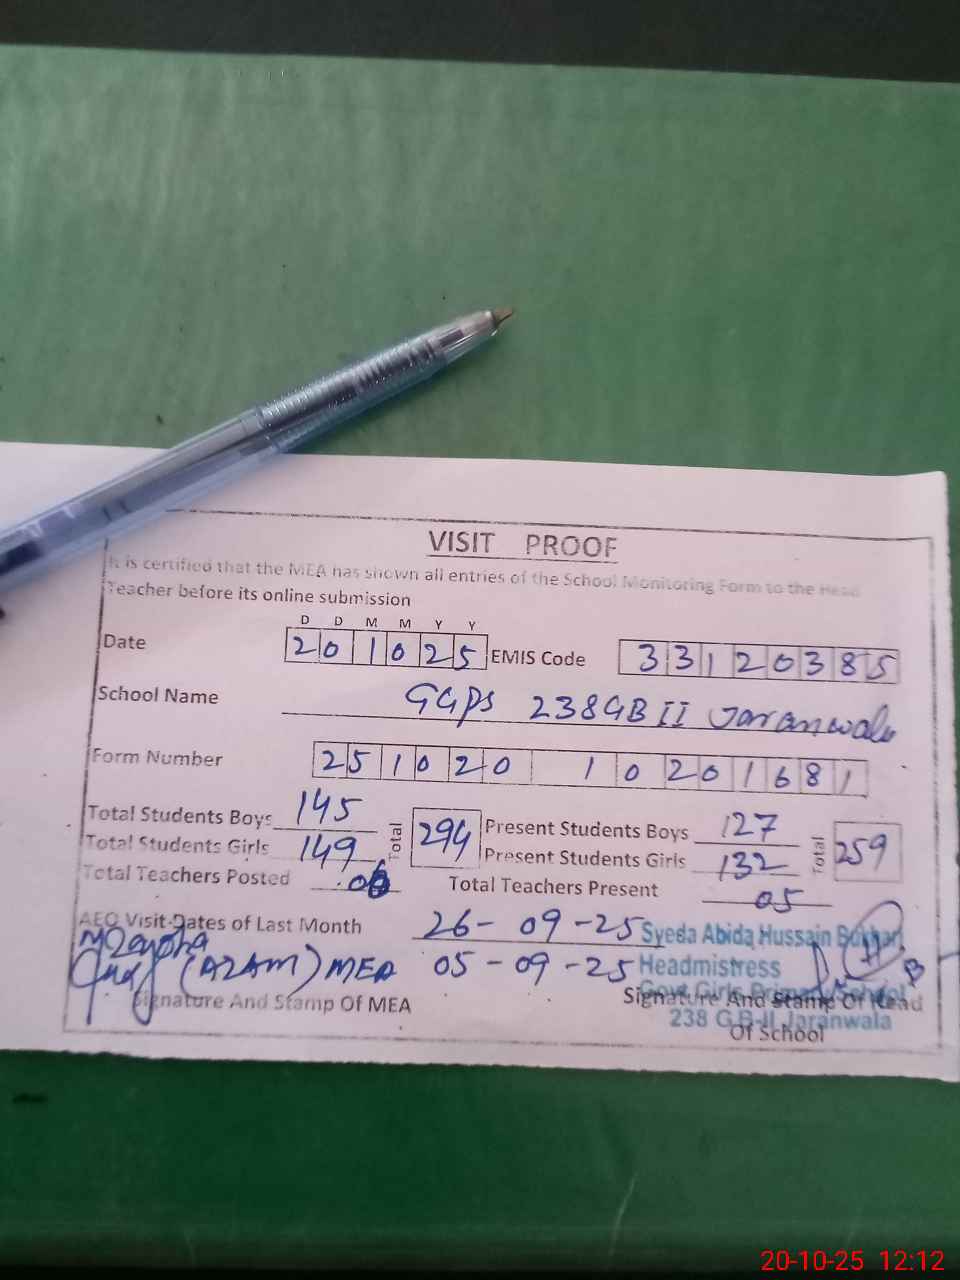 VISIT PROOF
It is certified that the MEA has shown all entries of the School Monitoring Form to the Head
Teacher before its online submission
D D M M Y Y
Date 20 10 25 EMIS Code 33120385
School Name GGPS 238GB II Jaranwala
Form Number 251020 10201681
Total Students Boys 145 Total 294 Present Students Boys 127 Total 259
Total Students Girls 149 Present Students Girls 132
Total Teachers Posted 06 Total Teachers Present 05
AEO Visit Dates of Last Month 26-09-25
(AZAM) MEA 05-09-25
Syeda Abida Hussain Bukhari
Headmistress
Govt Girls Primary School
238 G.B-II Jaranwala
Signature And Stamp Of MEA
Signature And Stamp Of Head
Of School
20-10-25 12:12